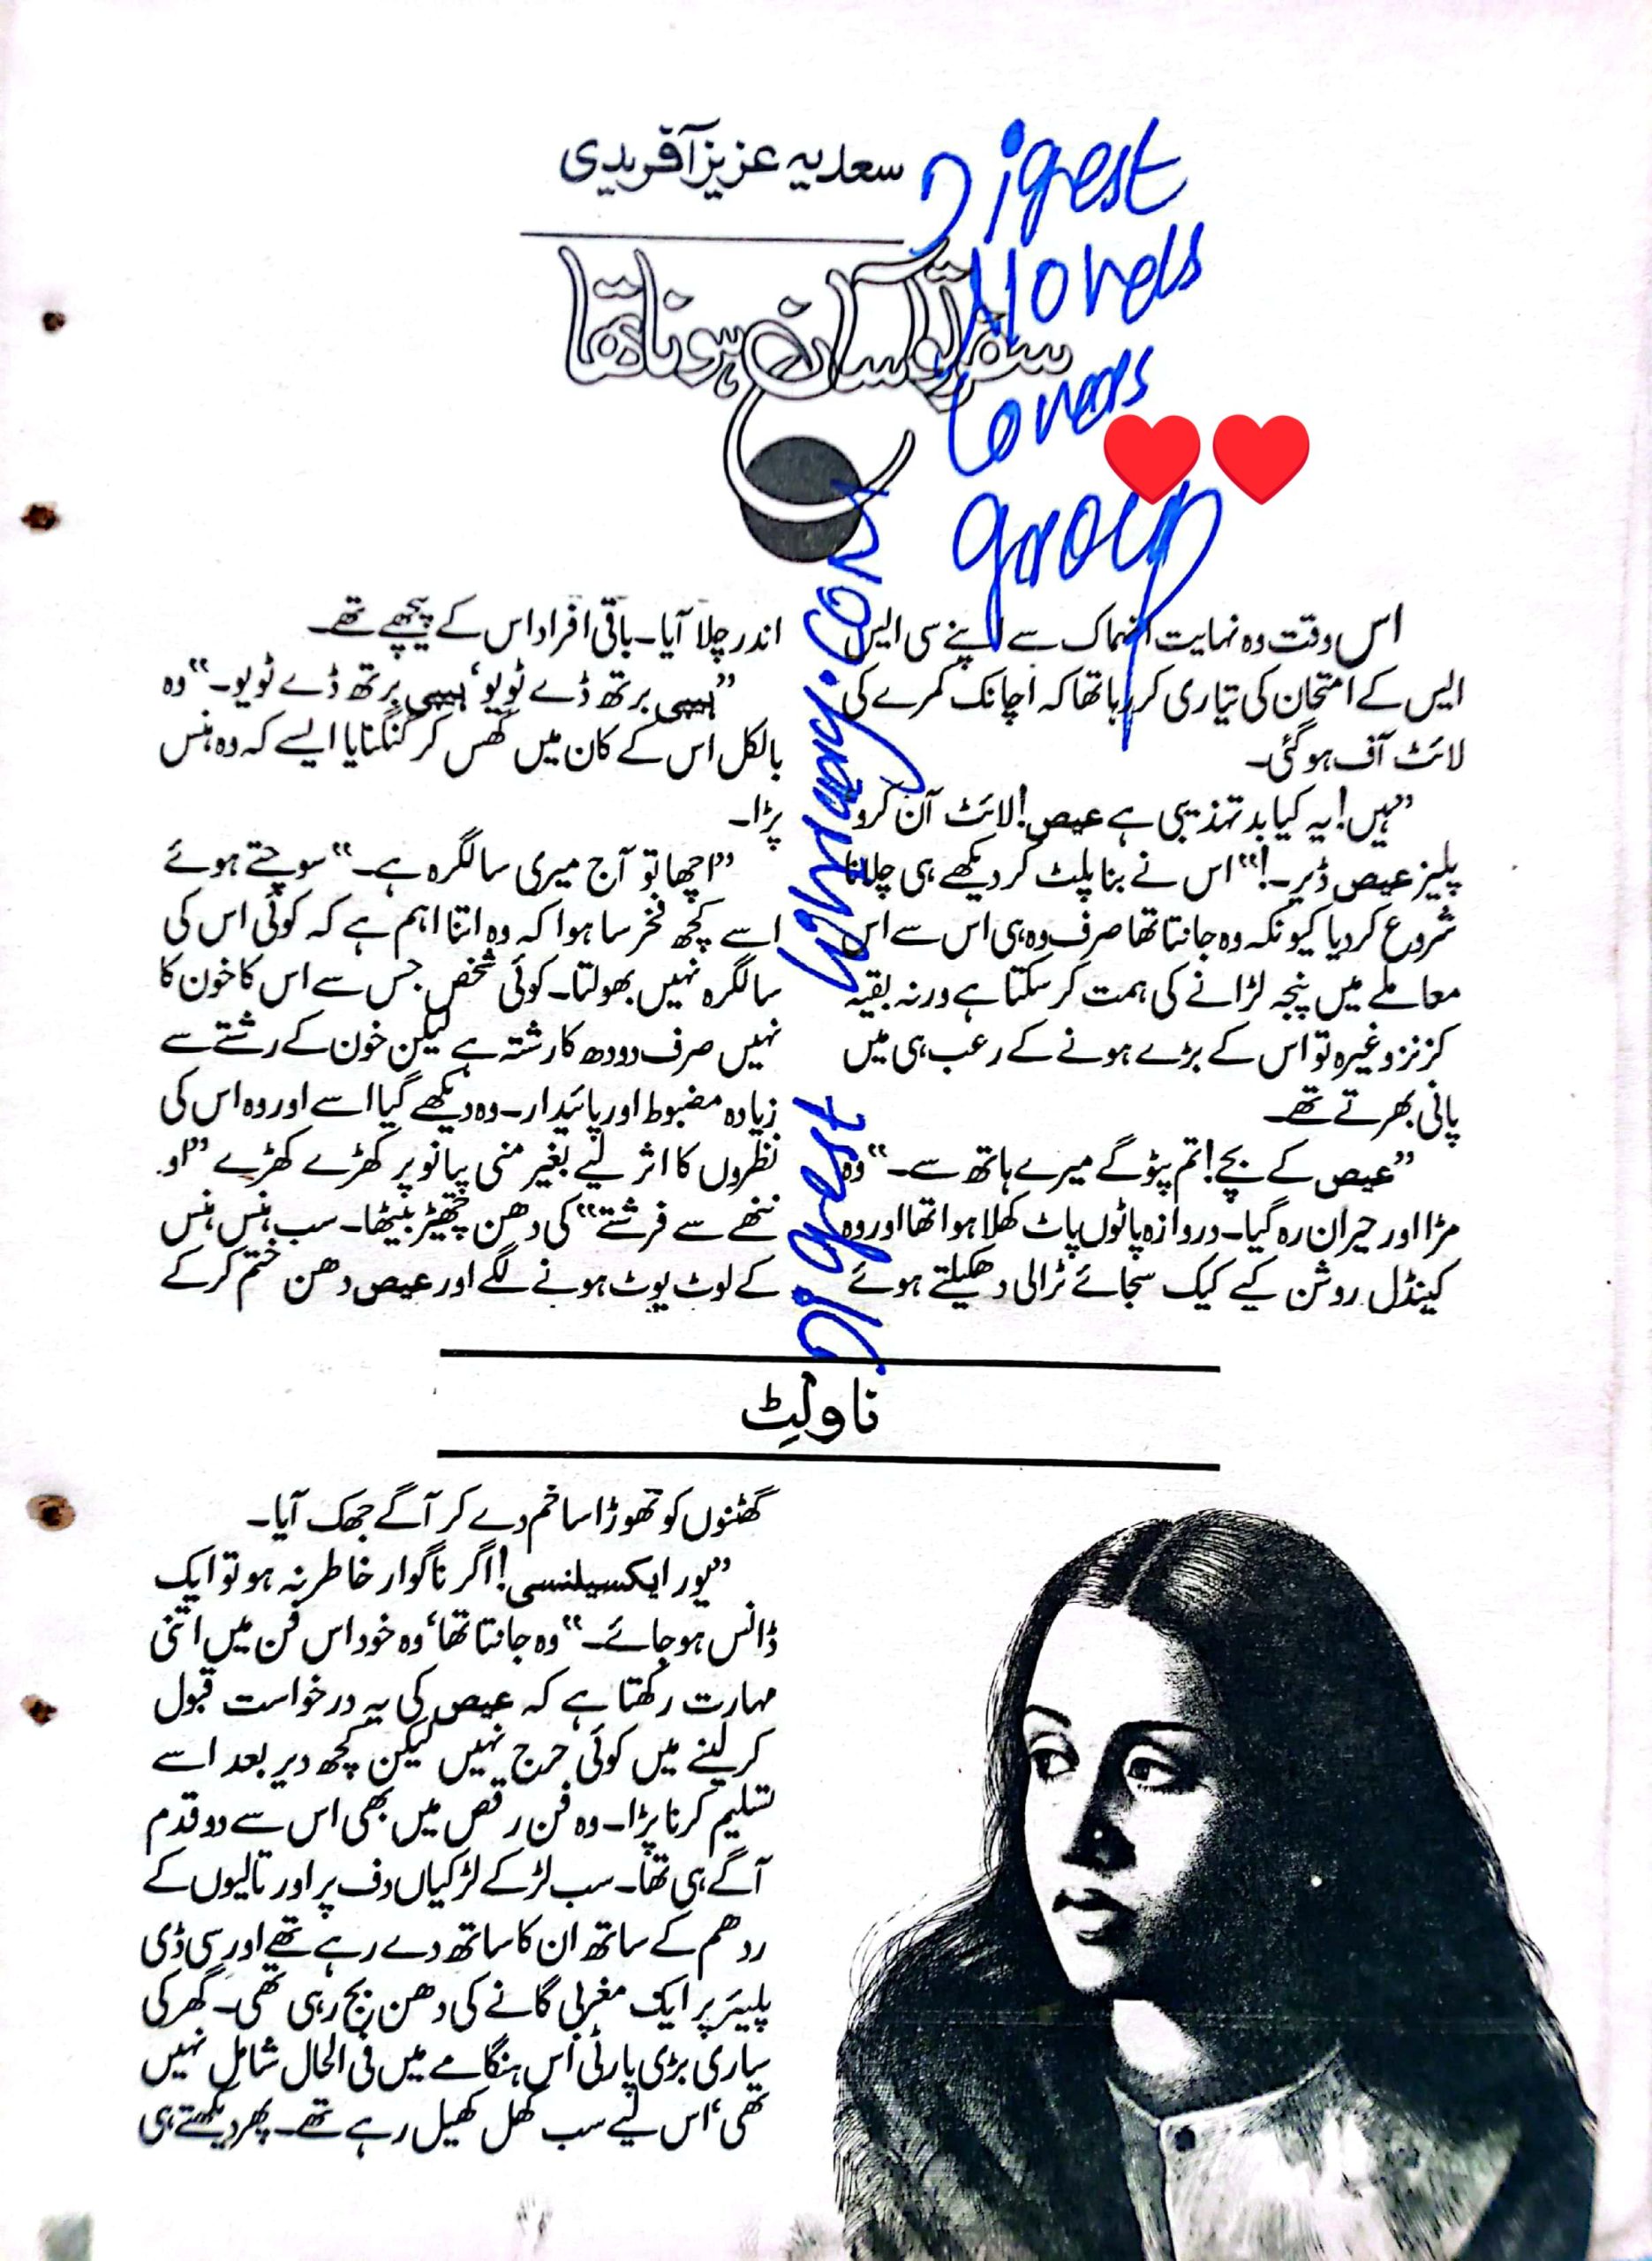 سعدیہ عزیز آفریدی
سفر تو آسان ہونا تھا
Digest
Novels
Lovers
group
❤️❤️
اس وقت وہ نہایت انہماک سے اپنے سی ایس
ایس کے امتحان کی تیاری کر رہا تھا کہ اچانک کمرے کی
لائٹ آف ہوگئی۔
”ہیں! یہ کیا بد تہذیبی ہے عیص! لائٹ آن کرو
پلیز عیص ڈیر۔!“ اس نے بنا پلٹ کر دیکھے ہی چلانا
شروع کردیا کیونکہ وہ جانتا تھا صرف وہ ہی اس سے اس
معاملے میں پنجہ لڑانے کی ہمت کر سکتا ہے ورنہ بقیہ
کزنز وغیرہ تو اس کے بڑے ہونے کے رعب ہی میں
پانی بھرتے تھے۔
”عیص کے بچے! تم پٹو گے میرے ہاتھ سے۔“ وہ
مڑا اور حیران رہ گیا۔ دروازہ پاٹوں پاٹ کھلا ہوا تھا اور وہ
کینڈل روشن کیے کیک سجائے ٹرالی دھکیلتے ہوئے
اندر چلا آیا۔ باقی افراد اس کے پیچھے تھے۔
”ہیپی برتھ ڈے ٹو یو‘ ہیپی برتھ ڈے ٹو یو۔“ وہ
بالکل اس کے کان میں گھس کر گنگنایا ایسے کہ وہ ہنس
پڑا۔
”اچھا تو آج میری سالگرہ ہے۔“ سوچتے ہوئے
اسے کچھ فخر سا ہوا کہ وہ اتنا اہم ہے کہ کوئی اس کی
سالگرہ نہیں بھولتا۔ کوئی شخص جس سے اس کا خون کا
نہیں صرف دودھ کا رشتہ ہے لیکن خون کے رشتے سے
زیادہ مضبوط اور پائیدار۔ وہ دیکھے گیا اسے اور وہ اس کی
نظروں کا اثر لیے بغیر منی پیانو پر کھڑے کھڑے ”او
ننھے سے فرشتے“ کی دھن چھیڑ بیٹھا۔ سب ہنس ہنس
کے لوٹ پوٹ ہونے لگے اور عیص دھن ختم کرکے
ناولٹ
گھٹنوں کو تھوڑا سا خم دے کر آگے جھک آیا۔
”یور ایکسیلنسی! اگر ناگوار خاطر نہ ہو تو ایک
ڈانس ہوجائے۔“ وہ جانتا تھا‘ وہ خود اس فن میں اتنی
مہارت رکھتا ہے کہ عیص کی یہ درخواست قبول
کرلینے میں کوئی حرج نہیں لیکن کچھ دیر بعد اسے
تسلیم کرنا پڑا۔ وہ فن رقص میں بھی اس سے دو قدم
آگے ہی تھا۔ سب لڑکے لڑکیاں دف پر اور تالیوں کے
ردھم کے ساتھ ان کا ساتھ دے رہے تھے اور سی ڈی
پلیئر پر ایک مغربی گانے کی دھن بج رہی تھی۔ گھر کی
ساری بڑی پارٹی اس ہنگامے میں فی الحال شامل نہیں
تھی‘ اس لیے سب کھل کھیل رہے تھے۔ پھر دیکھتے ہی